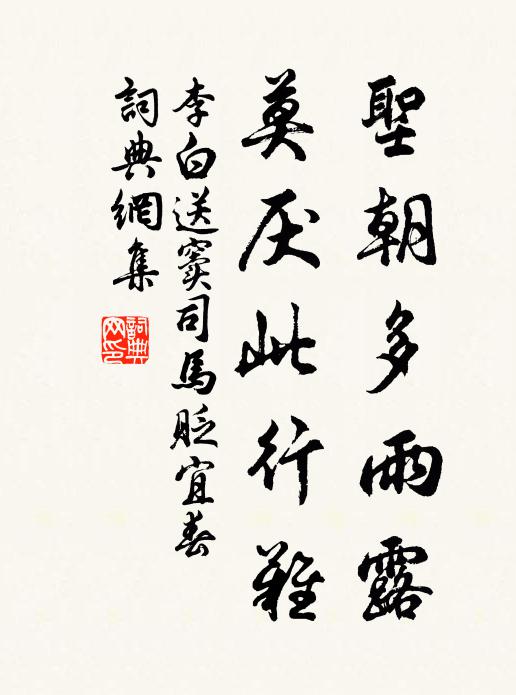 聖朝多雨露
莫厌此行難
李白送竇司馬貶宜春
詞典網集
詞典网印